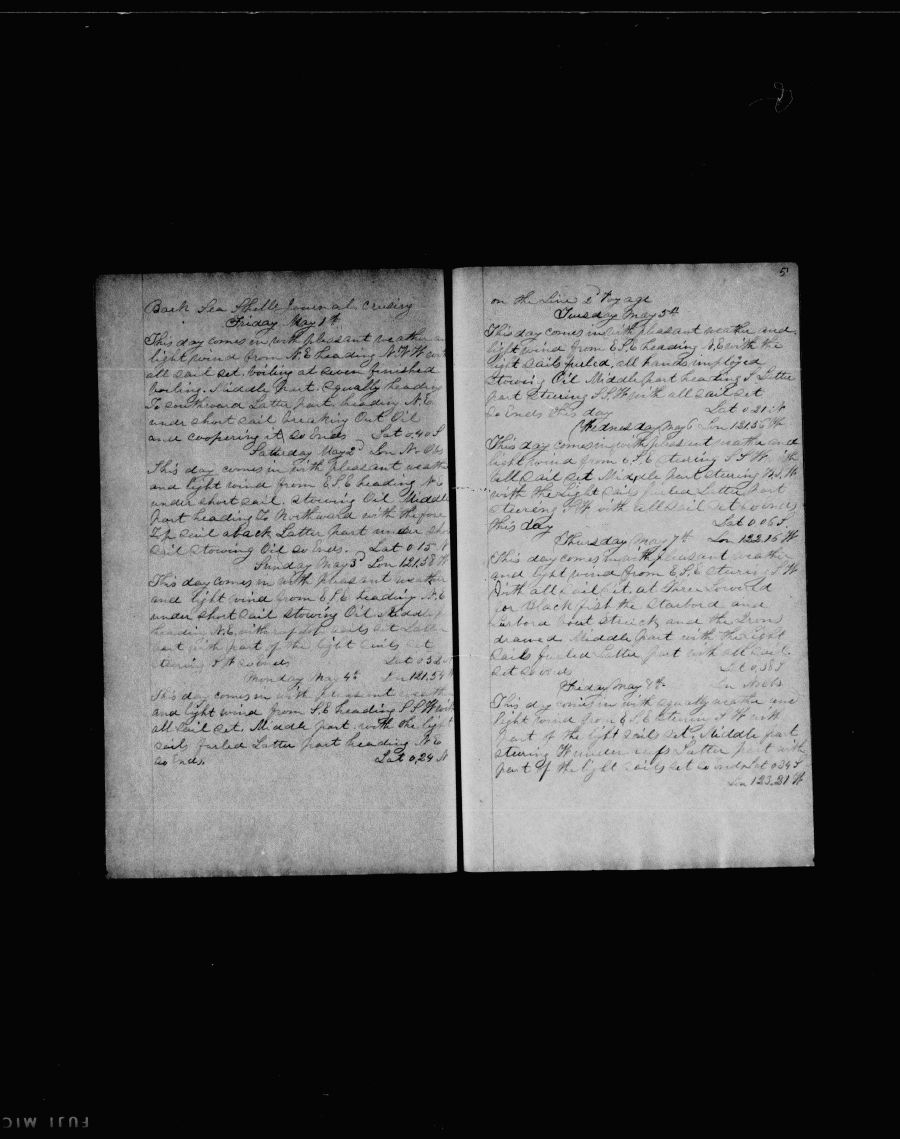 Bark Sea Shells Journal Crusing
Friday May 1th
This day comes in with pleasant weather an
light wind from N.E heading N.W.W with
all sail set. boiling at seven finished
boiling. Middle Part. Squally heading
To southward Latter part heading N.E
under short sail breaking Out Oil
and coopering it So Ends Lat 0,40 S
Satterday May 2d Lon No Obs
This day comes in with pleasant weathe
and light wind from E.S.E heading N.E
under short sail. Stowing Oil Middle
part heading To Northward with the fore
Top sail aback Latter part under sho
sail stowing Oil So ends. Lat 0.15 N
Sunday May 3d Lon 121,58 W
This day comes in with pleasant weather
and light wind from E.S.E heading N.E
under short sail stowing Oil Middle
heading N.E, with sails set Latter
part with part of the light sails set
stering S W So ends Lat 0 32 N
Monday May 4th Ln 121,54 W
This day comes in with pleasant weather
and light wind from S.E heading S S W with
all sail set. Middle part with the light
sails furled Latter part heading N E
So Ends. Lat 0,24 N
5
on the Line 2d Voyage
Tuesday May 5th
This day comes in with pleasant weather and
light wind from E.S.E heading N.E with the
light sails furled, all hands imployed
stowing Oil Middle part heading S Latter
part Steering S S W with all sail set
So Ends this day Lat 0.21 N
Wednesday May 6 Lon 121 56 W
This day comes in with pleasent weather and
light wind from E.S.E stering S S W with
all sail set Middle part stering W.S.W
with the light sails furled Latter part
steereng S W with all sail set so ends
this day Lat 0 06 S.
Thursday May 7th Lon 122.16 W
This day comes in with pleasent weather
and light wind from E.S.E stering S W
with all sail set. at Three Lowerd
for Blackfish the starbord and
larbord boat Struck and the Irons
drawed Middle part with the light
sails furled Latter part with all sail
set So ends Lat 0,38 S
Friday May 8th Lon No Obs
This day comes in with squally weather and
light wind from E.S.E sterin S W with
part of the light sails set, Middle part
stering W under Latter part with
part of the light sails set So ends Lat 0 34 S
Lon 123,21 W
FUJI MIC